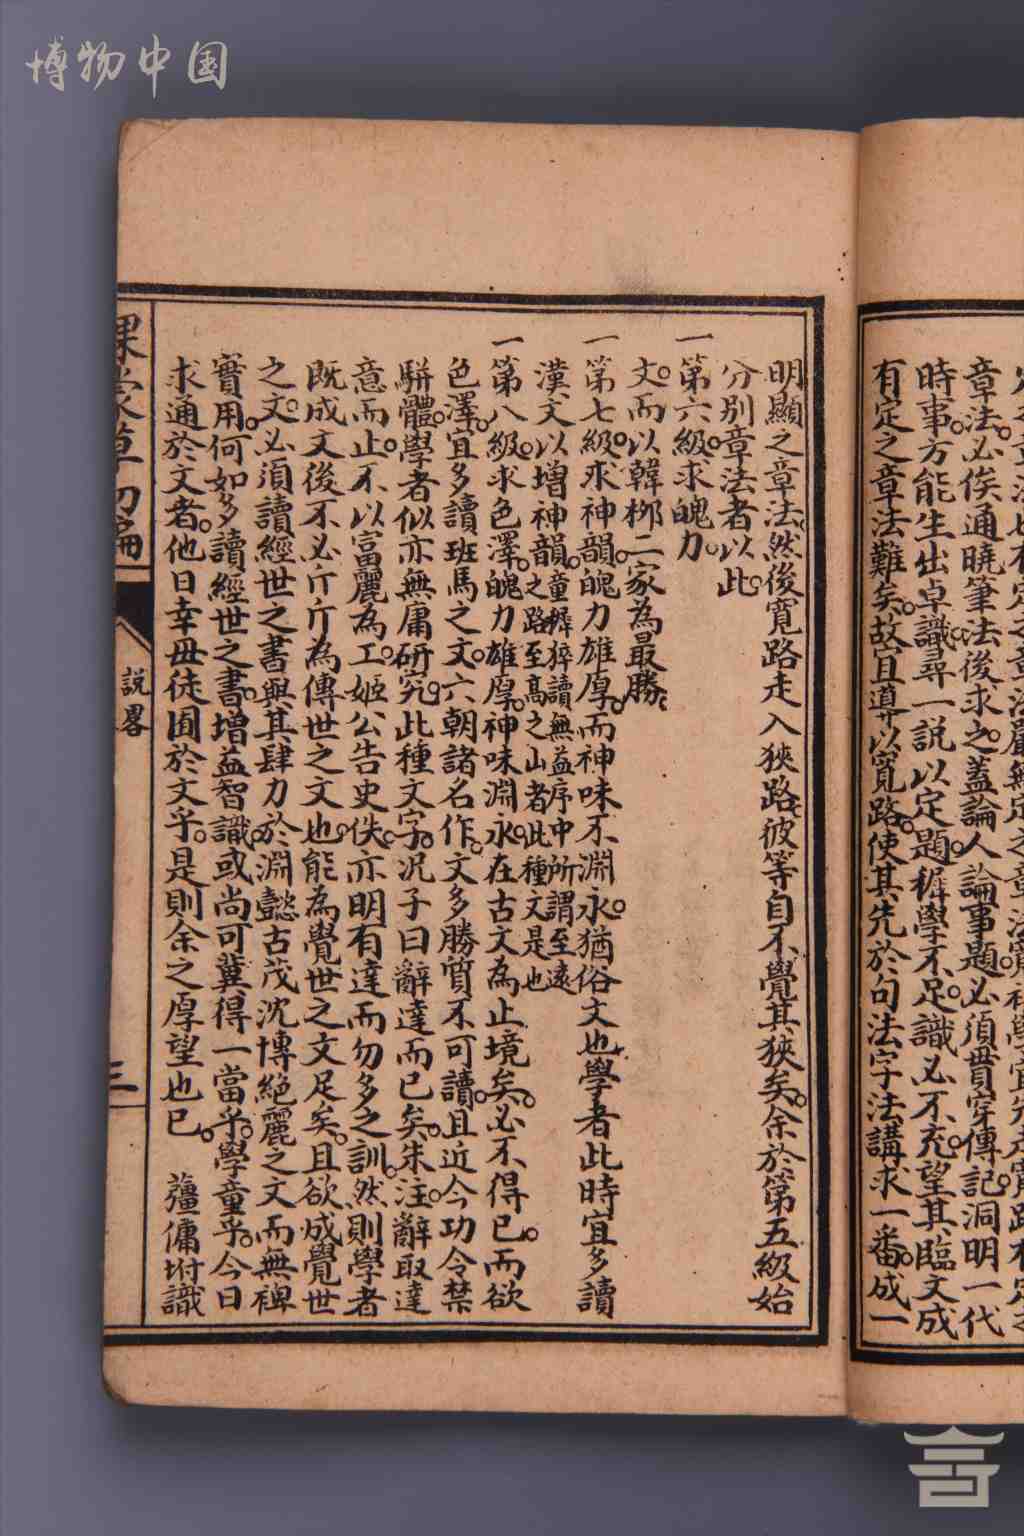 博物中国
章法。必俟通曉筆法後求之。蓋論人論事題。必須貫穿傳記。洞明一代
時事。方能生出卓識。尋一說以定題。穉學不足。識必不充。望其臨文成
有定之章法難矣。故宜導以寬路。使其先於句法字法講求一番。成一
明顯之章法。然後寬路走入狹路。彼等自不覺其狹矣。余於第五級始
分別章法者以此。
一第六級。求魄力。
文。而以韓柳二家為最勝。
一第七級。求神韻。魄力雄厚。而神味不淵永。猶俗文也。學者此時宜多讀
漢文以增神韻。童穉猝讀無益。序中所謂至遠之路至高之山者。此種文是也
一第八級。求色澤。魄力雄厚。神味淵永。在古文為止境矣。必不得已。而欲
色澤。宜多讀班馬之文。六朝諸名作。文多勝質。不可讀。且近今功令禁
駢體。學者似亦無庸研究此種文字。况子曰辭達而已矣。朱注。辭取達
意而止。不以富麗為工。姬公告史佚。亦明有達而勿多之訓。然則學者
既成文後。不必斤斤為傳世之文也。能為覺世之文足矣。且欲成覺世
之文。必須讀經世之書。與其肆力於淵懿古茂沈博絕麗之文而無裨
實用。何如多讀經世之書。增益智識。或尚可冀得一當乎。學童乎。今日
求通於文者。他日幸毋徒囿於文乎。是則余之厚望也已。 薑傭坿識
課蒙草初編
說畧
三